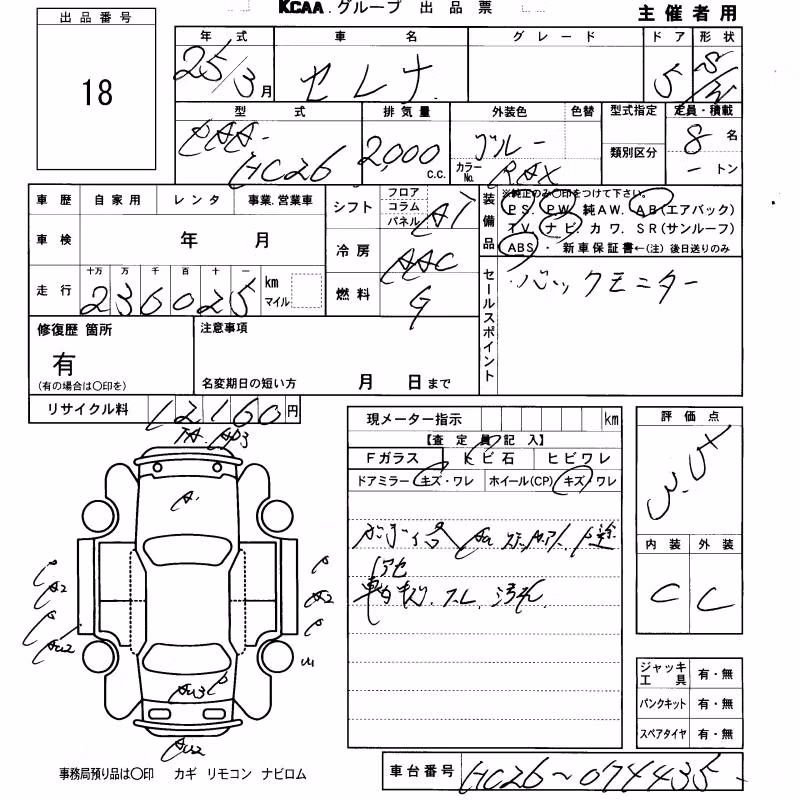 KCAA.グループ 出品票
主催者用
出品番号
18
年式 車名 グレード ドア 形状
25/3月 セレナ 5 S/W
型式 排気量 外装色 色替 型式指定 定員・積載
HC26 2,000 c.c. ブルー カラーNo. RAX 類別区分 8名
ートン
車歴 自家用 レンタ 事業.営業車
シフト フロア コラム パネル AT
車検 年 月
冷房 AAC
走行 十万 万 千 百 十 一 km マイル
236025
燃料 G
装備品 ※純正のみ○印をつけて下さい。
PS. PW. 純AW. AB(エアバック)
TV. ナビ. カワ. SR(サンルーフ)
ABS ・ 新車保証書←(注) 後日送りのみ
セールスポイント
・バックモニター
修復歴 箇所
有
(有の場合は○印を)
注意事項
名変期日の短い方 月 日まで
リサイクル料 12160円
現メーター指示 km
【査定員記入】
Fガラス トビ石 ヒビワレ
ドアミラー キズ・ワレ ホイール(CP) キズ・ワレ
評価点
内装 外装
C C
A2
A2
ジャッキ工具 有・無
パンクキット 有・無
スペアタイヤ 有・無
事務局預り品は○印 カギ リモコン ナビロム
車台番号 HC26～074435